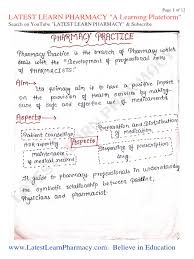 Page 1 of 12
LATEST LEARN PHARMACY "A Learning Plateform"
Search on YouTube "LATEST LEARN PHARMACY" & Subscribe
PHARMACY PRACTICE
Pharmacy Practice is the branch of Pharmacy which
deals with the "Development of professional roles
of PHARMACISTS."
Aim → Its primary aim is to have a positive impact
on the provision of health services by making
sure of safe and effective use of medicaments
Aspects →
Patient Counselling
Preparation and Distribution
of medication
Ask-security
maintenance
of medical record
Aspects
Dispensing of prescription
drug
It guide to pharmacy professionals in understanding
the symbiotic relationship between patient,
Physicians and pharmacist
www.LatestLearnPharmacy.com Believe in Education